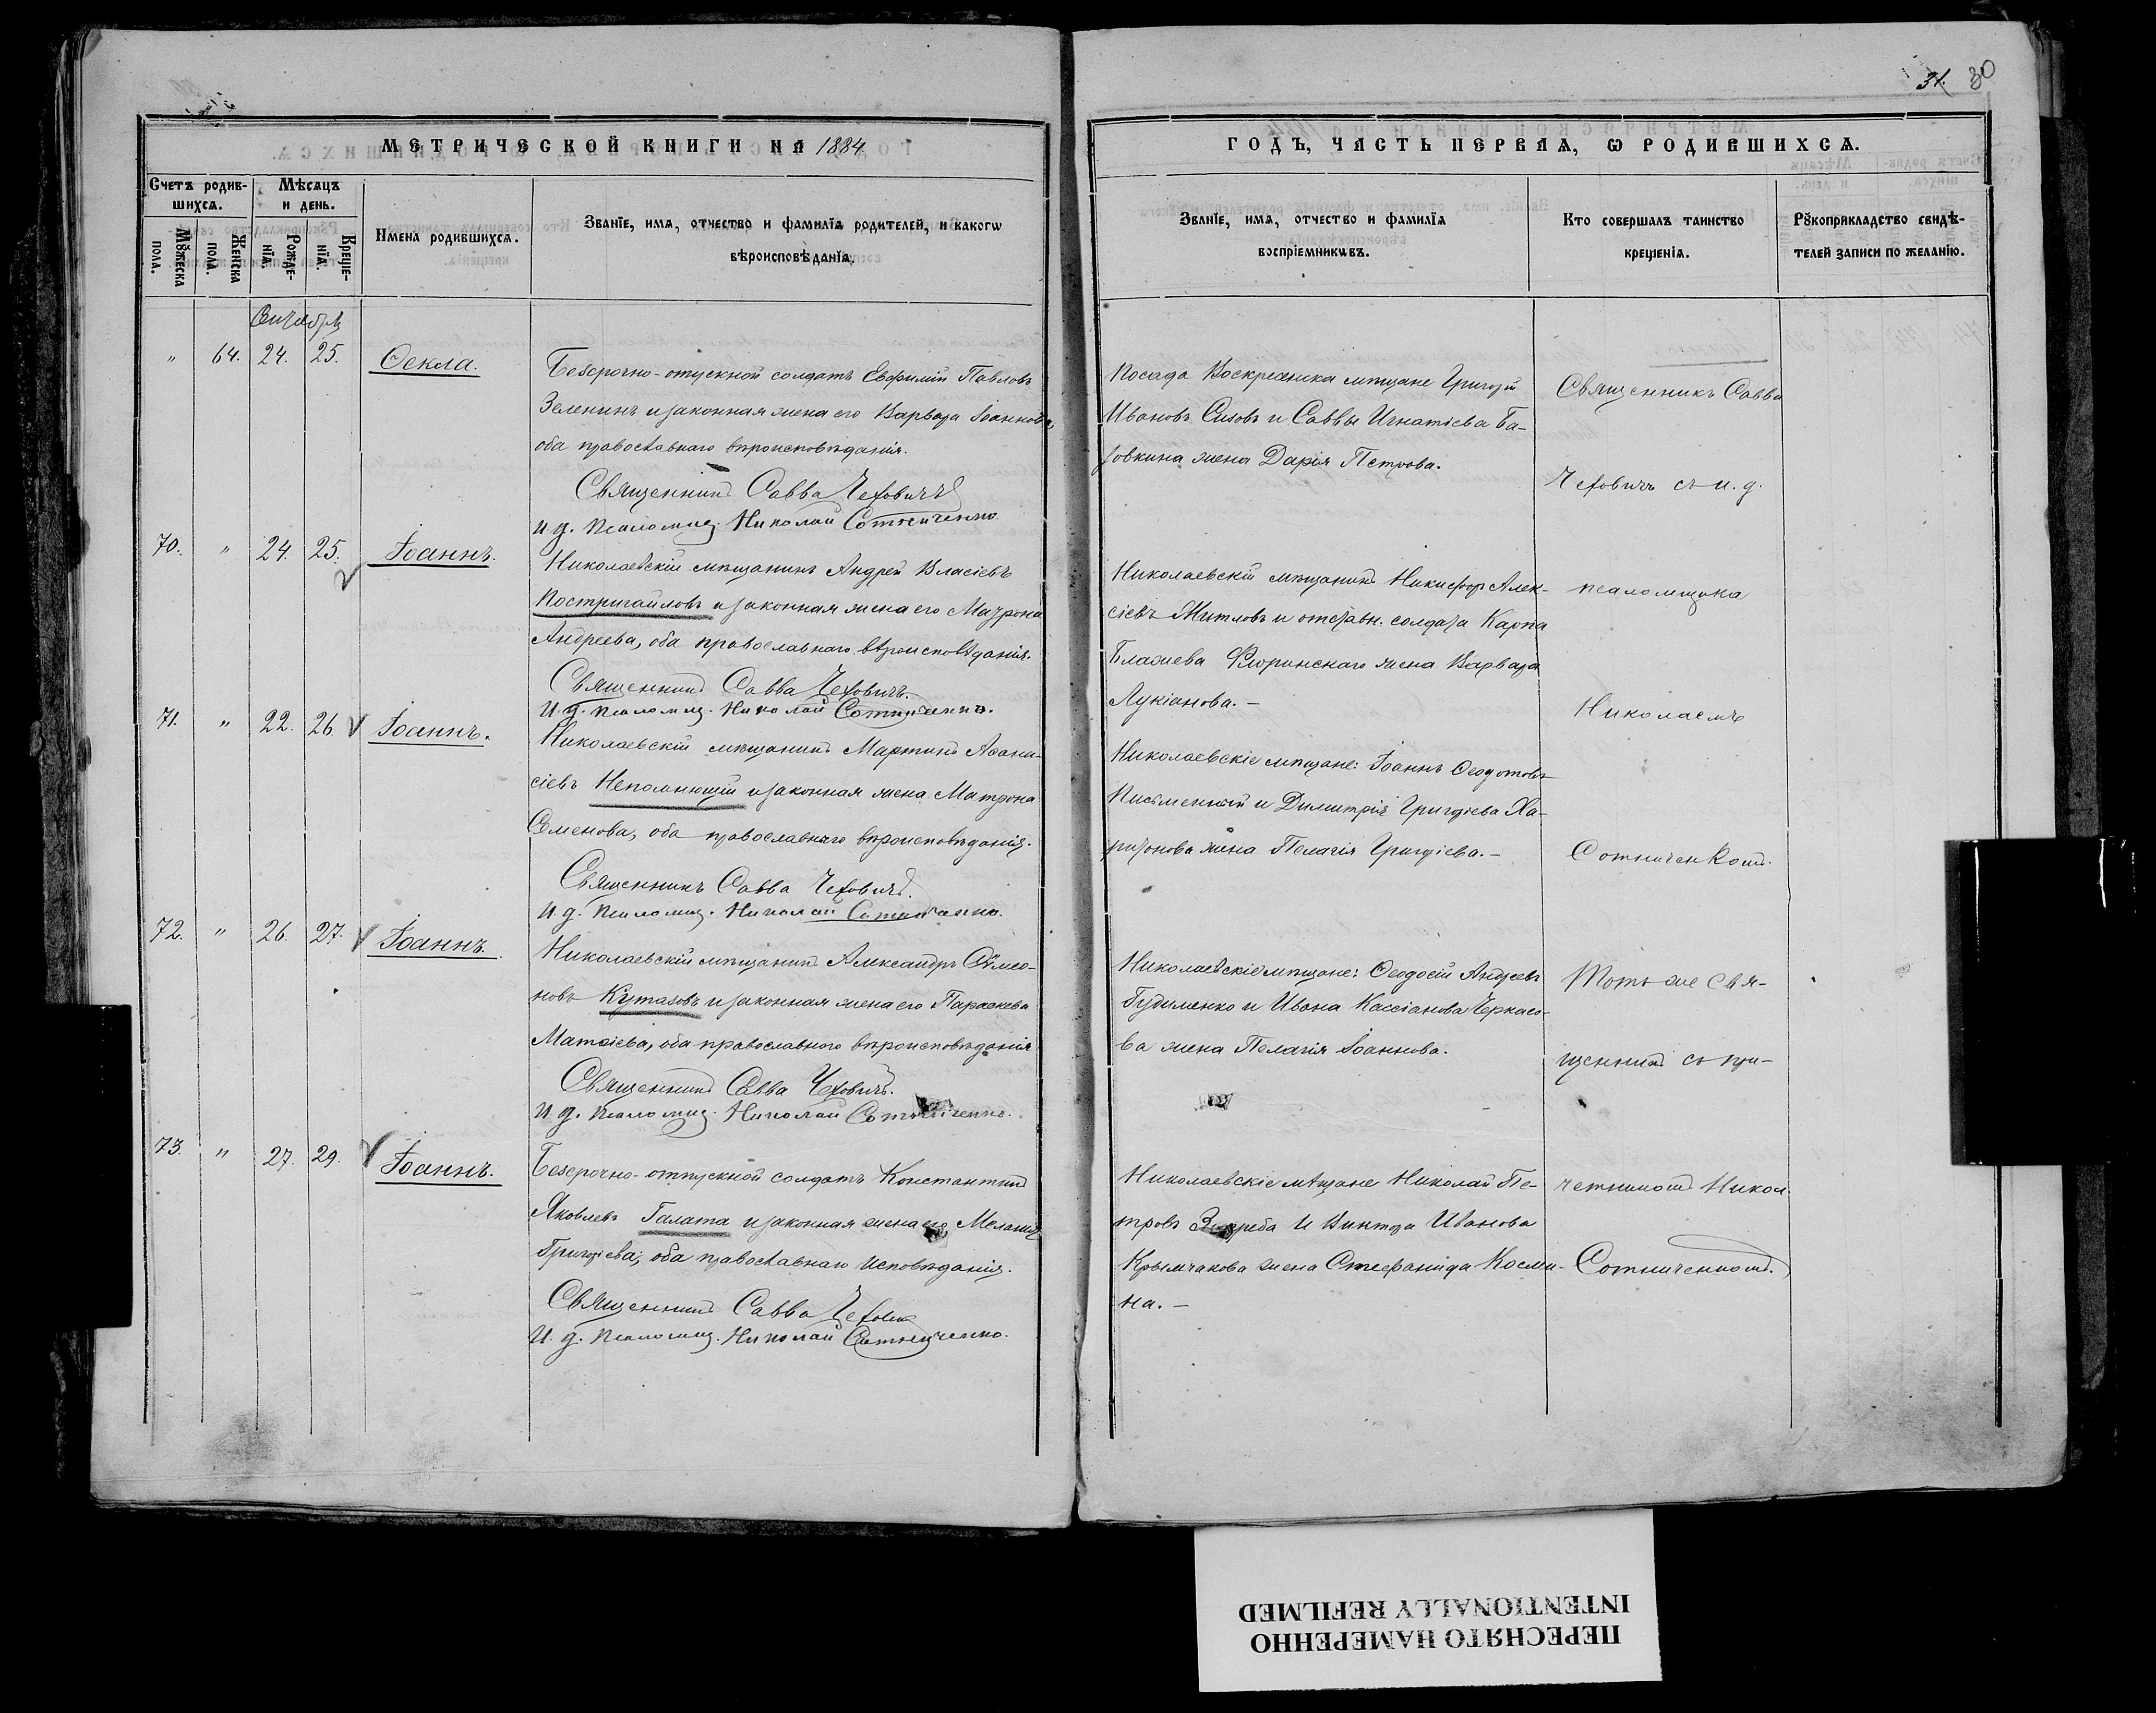 31. 30
МЕТРИЧЕСКОЙ КНИГИ НА 1884
ГОДЪ, ЧАСТЬ ПЕРВАЯ, Ѡ РОДИВШИХСѦ.
Счетъ родив-
шихсѧ.
Мѣсѧцъ
и день.
Мꙋжеска
пола.
Женска
пола.
Рожде-
нїѧ.
Креще-
нїѧ.
Имена родившихсѧ.
Званїе, имѧ, отчество и фамилїѧ родителей, и какогѡ
вѣроисповѣданїѧ.
Званїе, имѧ, отчество и фамилїѧ
воспрїемникѡвъ.
Кто совершалъ таинство
крещенїѧ.
Рꙋкоприкладство свидѣ-
телей записи по желанїю.
" 64. 24. 25. Ѳекла.
Безсрочно-отпускной солдатъ Евфимій Павловъ
Зеленинъ и законная жена его Варвара Іоаннова,
оба православнаго вѣроисповѣданія.
Священникъ Савва Чеховичъ
И. д. псаломщ. Николай Сотниченко.
Посада Воскресенска мѣщане Григорій
Ивановъ Сизовъ и Саввы Игнатіева Ба-
ловкина жена Дарія Петрова.
Священникъ Савва
Чеховичъ съ и. д.
70. " 24. 25. Іоаннъ.
Николаевскій мѣщанинъ Андрей Власіевъ
Постригайловъ и законная жена его Матрона
Андреева, оба православнаго вѣроисповѣданія.
Священникъ Савва Чеховичъ.
И. д. псаломщ. Николай Сотниченко.
Николаевскій мѣщанинъ Никифоръ Алек-
сіевъ Житловъ и отставн. солдата Карпа
Власіева жена Варвара
Лукіанова.-
псаломщика
Николаемъ
71. " 22. 26 Іоаннъ.
Николаевскій мѣщанинъ Мартинъ Аѳана-
сіевъ Непомнющій и законная жена Матрона
Семенова, оба православнаго вѣроисповѣданія.
Священникъ Савва Чеховичъ.
И. д. псаломщ. Николай Сотниченко.
Николаевскіе мѣщане: Іоаннъ Ѳедотовъ
Письменный и Димитрія Григоріева Ха-
ритонова жена Пелагія Григоріева.-
Сотниченкомъ.
72. " 26. 27. Іоаннъ.
Николаевскій мѣщанинъ Александръ Сѵмео-
новъ Кутазовъ и законная жена его Параскева
Матѳіева, оба православнаго вѣроисповѣданія
Священникъ Савва Чеховичъ.
И. д. псаломщ. Николай Сотниченко.
Николаевскіе мѣщане: Ѳеодосій Андреевъ
Гудименко и Ивана Кассіанова Черкасо-
ва жена Пелагія Іоаннова.
Тотъ же свя-
щенникъ съ при-
73. " 27. 29. Іоаннъ.
Безсрочно-отпускной солдатъ Константинъ
Яковлевъ Галата и законная жена его Меланія
Григоріева, оба православнаго исповѣданія.
Священникъ Савва Чеховичъ
И. д. псаломщ. Николай Сотниченко.
Николаевскіе мѣщане Николай Пе-
тровъ и Виктора Иванова
Крымчакова жена Стефанида Косми-
на.-
четникомъ Никол.
Сотниченкомъ.
ПЕРЕСНЯТО НАМЕРЕННО
INTENTIONALLY REFILMED